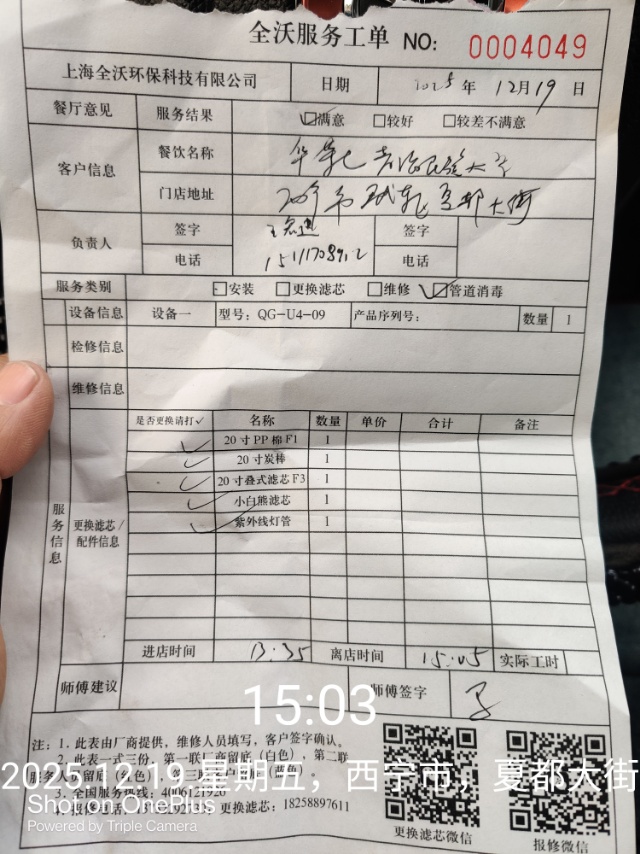 全沃服务工单 NO: 0004049
上海全沃环保科技有限公司 日期 2025年 12月19日
餐厅意见 服务结果 ☑满意 □较好 □较差不满意
客户信息 餐饮名称
门店地址 夏都大街
负责人 签字 签字
电话 电话
服务类别 □安装 □更换滤芯 □维修 ☑管道消毒
设备信息 设备一 型号: QG-U4-09 产品序列号: 数量 1
检修信息
维修信息
服务信息
更换滤芯/配件信息
是否更换请打✓ 名称 数量 单价 合计 备注
✓ 20寸PP棉F1 1
✓ 20寸炭棒 1
✓ 20寸叠式滤芯F3 1
✓ 小白熊滤芯 1
✓ 紫外线灯管 1
进店时间 13:35 离店时间 15:05 实际工时
师傅建议 师傅签字
15:03
注: 1. 此表由厂商提供，维修人员填写，客户签字确认。
2. 此表一式三份，第一联厂商留底（白色），第二联
服务人员留底（红色），第三联客户留底（蓝色）。
2025.12.19 星期五，西宁市，夏都大街
3. 全国服务热线: 4006121920
4. 报修电话: 更换滤芯: 18258897611
Shot on OnePlus
Powered by Triple Camera
更换滤芯微信 报修微信